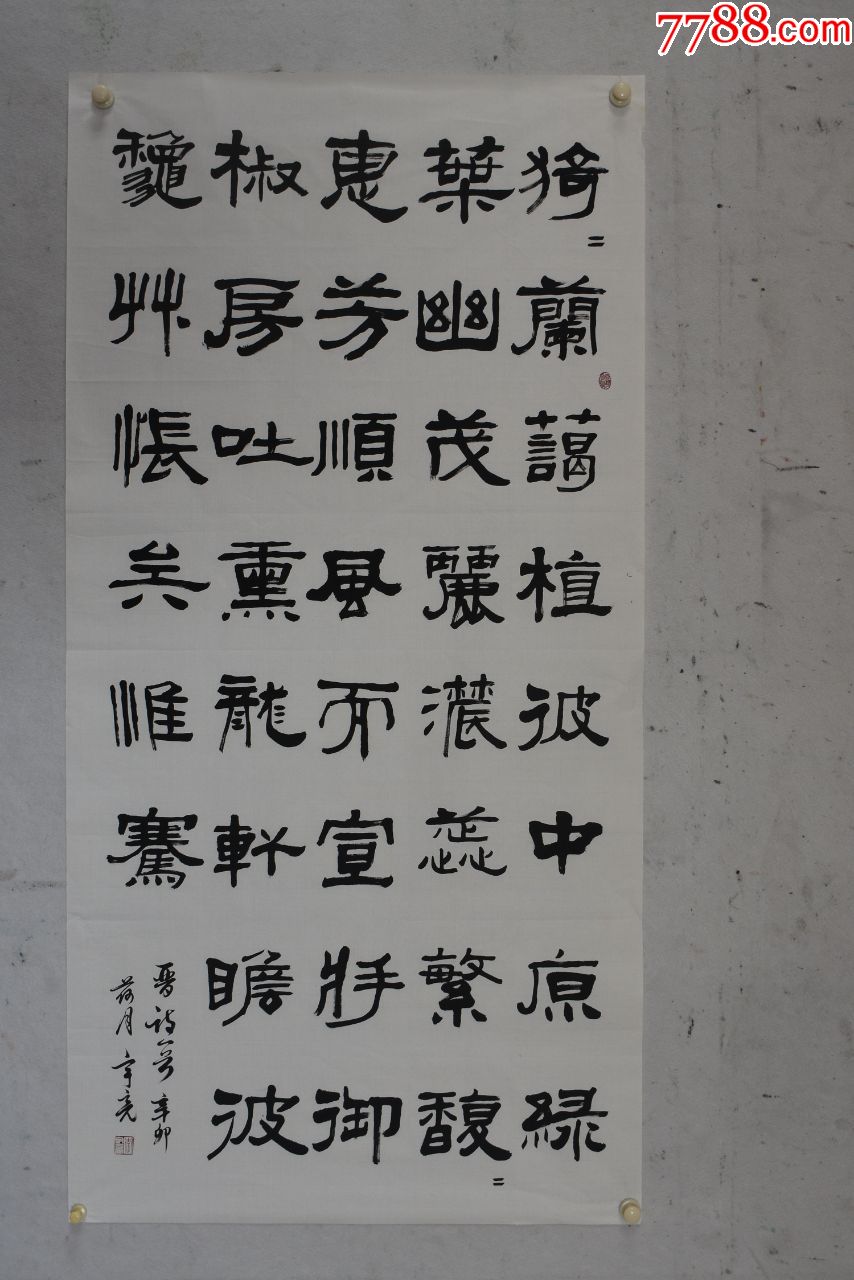 7788.com
猗〻蘭藹植彼中原綠
葉幽茂麗濃蕊繁馥〻
惠芳順風而宣將御
椒房吐熏龍軒瞻彼
龝艸悵矣惟騫
晉詩一首 辛卯
荷月 宇亮